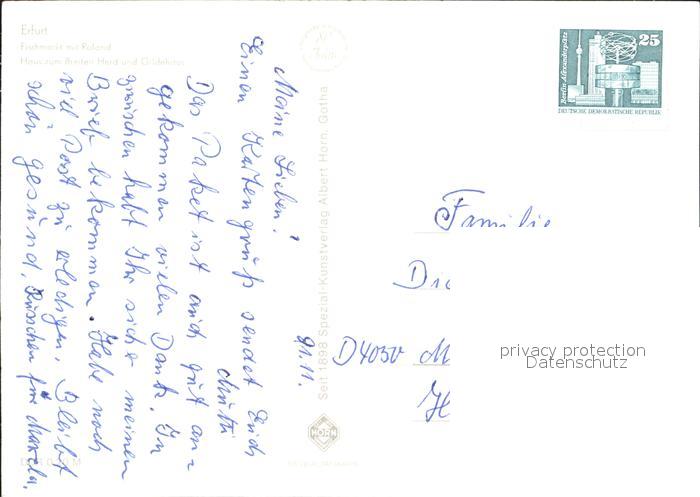 Erfurt
Fischmarkt mit Roland
Haus zum Breiten Herd und Gildehaus
Meine Lieben!
Einen Kartengruß sendet Euch
Mutti
Das Paket ist auch gut an-
gekommen vielen Dank. In
zwischen habt Ihr sicher meinen
Brief bekommen. Habe noch
viel Post zu erledigen. Bleibt
schön gesund. Küsschen für
91.11.
Seit 1898 Spezial-Kunstverlag Albert Horn, Gotha
HORN
Berlin, Alexanderplatz
25
DEUTSCHE DEMOKRATISCHE REPUBLIK
Familie
D4050 M
privacy protection
Datenschutz